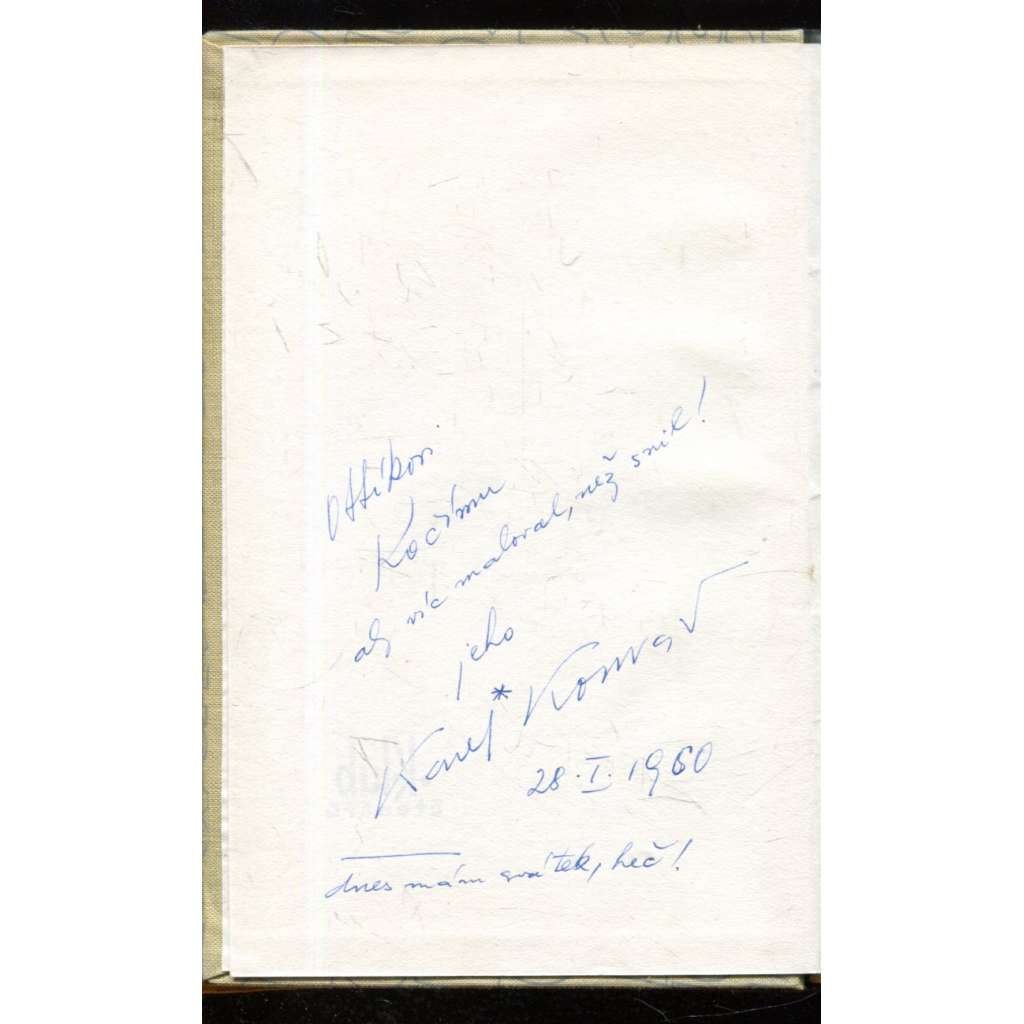 Ottíkovi
Kočímu
aby víc maloval, než snil!
jeho
Karel* Konrad
28.I.1960
dnes mám svátek, heč!